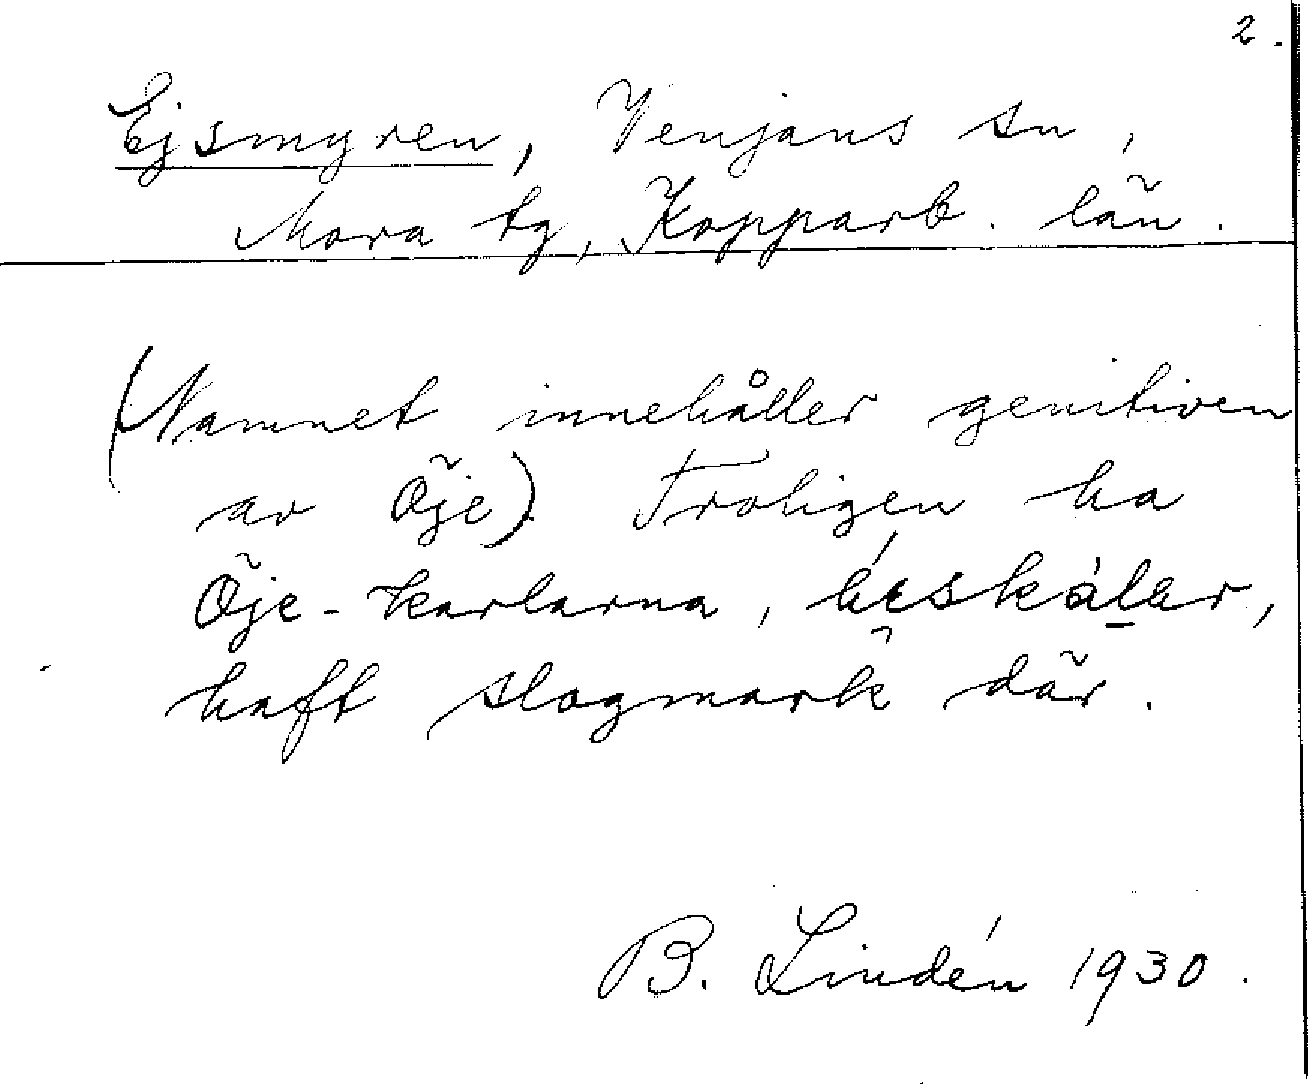 2.
Ejsmyren, Venjans sn,
Mora tg, Kopparb. län.
(Namnet innehåller genitiven
av Öje). Troligen ha
Öje-karlarna,
haft slogmark där.
B. Lindén 1930.